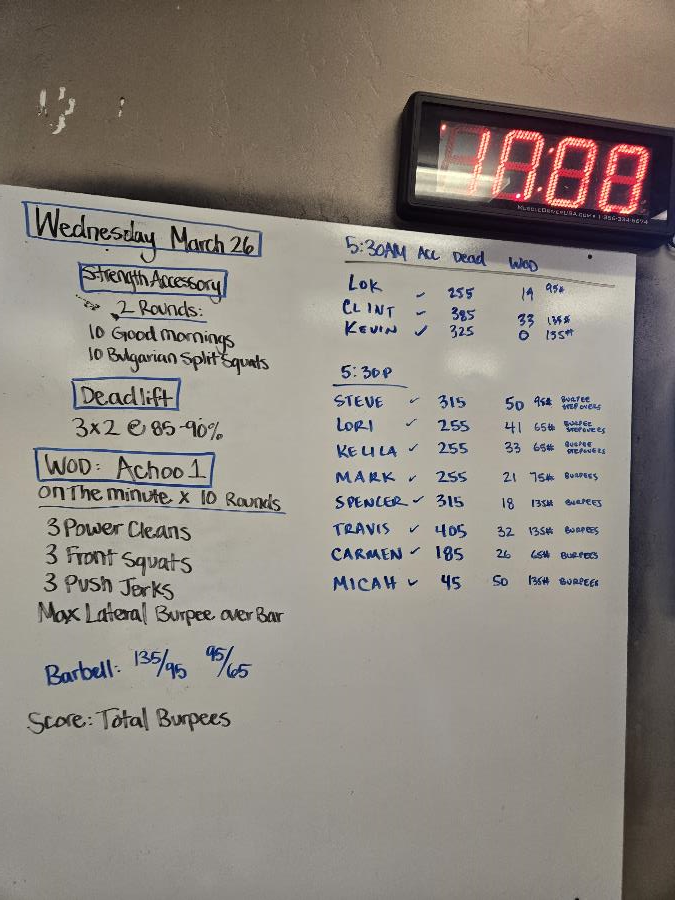 10:00
MUSCLEDRIVERUSA.COM • 1-866-234-6674
Wednesday March 26
Strength Accessory
2 Rounds:
10 Good mornings
10 Bulgarian Split Squats
Deadlift
3x2 @ 85-90%
WOD: Achoo 1
on The minute x 10 Rounds
3 Power Cleans
3 Front Squats
3 Push Jerks
Max Lateral Burpee over Bar
Barbell: 135/95 95/65
Score: Total Burpees
5:30AM ACC Dead WOD
LOK ✓ 255 19 95#
CLINT ✓ 385 33 135#
KEVIN ✓ 325 0 135#
5:30P
STEVE ✓ 315 50 95# BURPEE STEPOVERS
LORI ✓ 255 41 65# BURPEE STEPOVERS
KELLA ✓ 255 33 65# BURPEE STEPOVERS
MARK ✓ 255 21 75# BURPEES
SPENCER ✓ 315 18 135# BURPEES
TRAVIS ✓ 405 32 135# BURPEES
CARMEN ✓ 185 26 65# BURPEES
MICAH ✓ 45 50 135# BURPEES